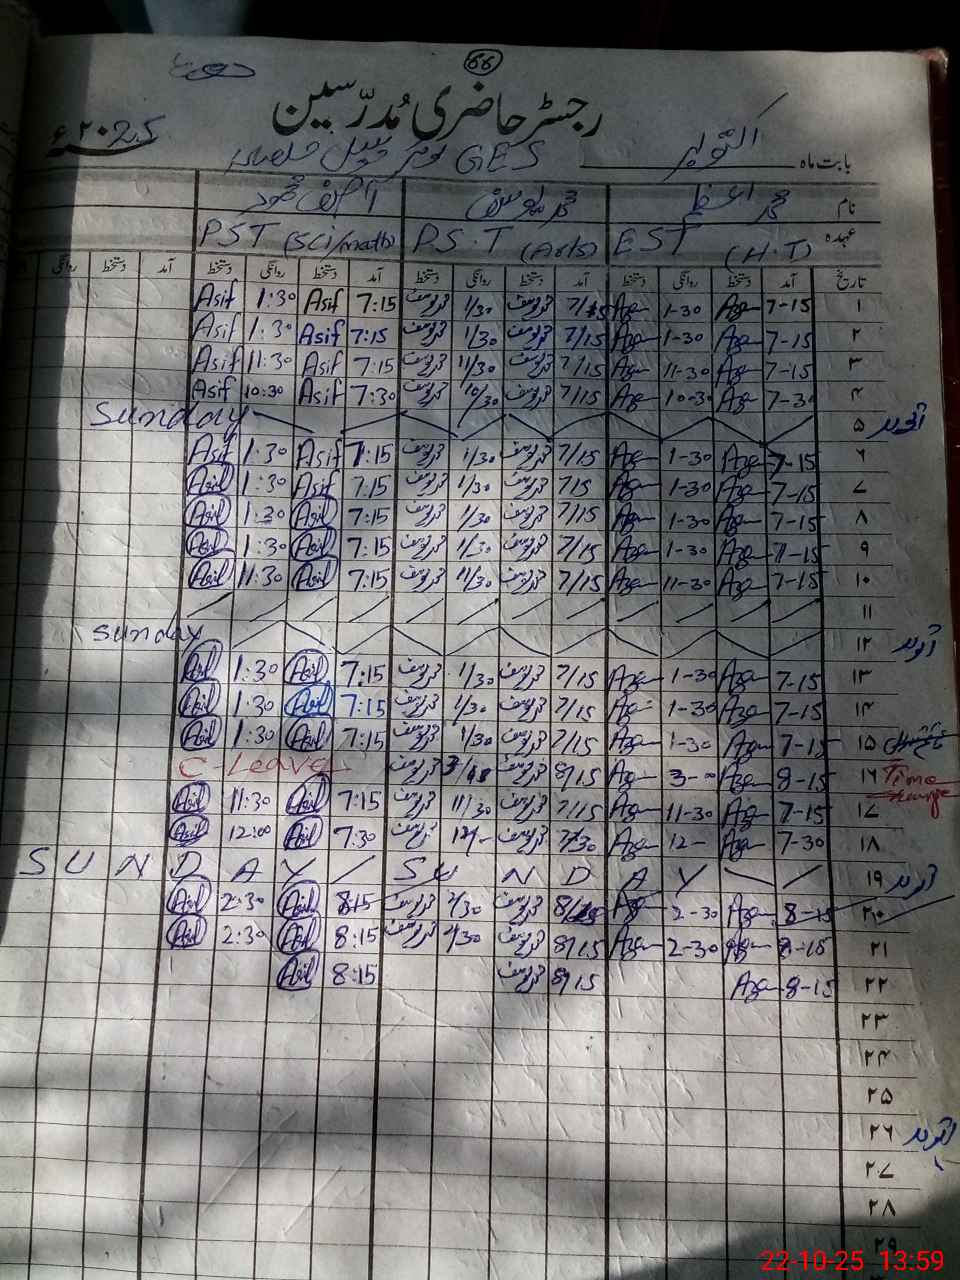 66
رجسٹر حاضری مُدرّسین
۲۰25ء
بابت ماہ اکتوبر GES
نام محمد اعظم محمد یوسف آصف محمود
عہدہ EST (H.T) P.S.T (Arts) PST (Sci/math)
تاریخ آمد دستخط روانگی دستخط آمد دستخط روانگی دستخط آمد دستخط روانگی دستخط آمد دستخط روانگی
۱ 7-15 Aza 1-30 Aza 7/15 محمد یوسف 1/30 محمد یوسف 7:15 Asif 1:30 Asif
۲ 7-15 Aza 1-30 Aza 7/15 محمد یوسف 1/30 محمد یوسف 7:15 Asif 1:30 Asif
۳ 7-15 Aza 11-30 Aza 7/15 محمد یوسف 11/30 محمد یوسف 7:15 Asif 11:30 Asif
۴ 7-30 Aza 10-30 Aza 7/15 محمد یوسف 10/30 محمد یوسف 7:30 Asif 10:30 Asif
اتوار ۵ Sunday
۶ 7-15 Aza 1-30 Aza 7/15 محمد یوسف 1/30 محمد یوسف 7:15 Asif 1:30 Asif
۷ 7-15 Aza 1-30 Aza 7/15 محمد یوسف 1/30 محمد یوسف 7:15 Asif 1:30 Asif
۸ 7-15 Aza 1-30 Aza 7/15 محمد یوسف 1/30 محمد یوسف 7:15 Asif 1:30 Asif
۹ 7-15 Aza 1-30 Aza 7/15 محمد یوسف 1/30 محمد یوسف 7:15 Asif 1:30 Asif
۱۰ 7-15 Aza 11-30 Aza 7/15 محمد یوسف 11/30 محمد یوسف 7:15 Asif 11:30 Asif
۱۱
اتوار ۱۲ Sunday
۱۳ 7-15 Aza 1-30 Aza 7/15 محمد یوسف 1/30 محمد یوسف 7:15 Asif 1:30 Asif
۱۴ 7-15 Aza 1-30 Aza 7/15 محمد یوسف 1/30 محمد یوسف 7:15 Asif 1:30 Asif
۱۵ 7-15 Aza 1-30 Aza 7/15 محمد یوسف 1/30 محمد یوسف 7:15 Asif 1:30 Asif
Time Change ۱۶ 8-15 Aza 3-00 Aza 8/15 محمد یوسف محمد یوسف C-Leave
۱۷ 7-15 Aza 11-30 Aza 7/15 محمد یوسف 11/30 محمد یوسف 7:15 Asif 11:30 Asif
۱۸ 7-30 Aza 12- Aza 7/30 محمد یوسف 12/- محمد یوسف 7:30 Asif 12:00 Asif
اتوار ۱۹ SUNDAY / SUNDAY
۲۰ 8-15 Aza 2-30 Aza 8/15 محمد یوسف 2/30 محمد یوسف 8:15 Asif 2:30 Asif
۲۱ 8-15 Aza 2-30 Aza 8/15 محمد یوسف 2/30 محمد یوسف 8:15 Asif 2:30 Asif
۲۲ 8-15 Aza 8/15 محمد یوسف 8:15 Asif
۲۳
۲۴
۲۵
اتوار ۲۶
۲۷
۲۸
۲۹
22-10-25 13:59